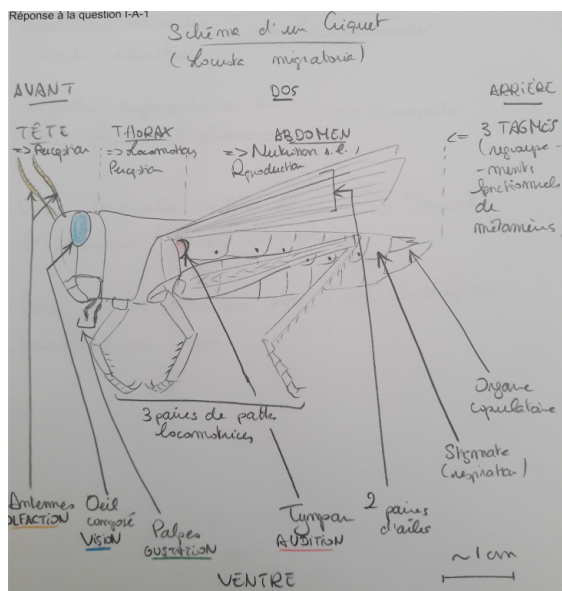 Réponse à la question I-A-1
Schéma d'un Criquet
(Locusta migratoria)
AVANT
DOS
ARRIÈRE
TÊTE
=> Perception
THORAX
=> Locomotion,
Perception
ABDOMEN
=> Nutrition s.l.,
Reproduction
<= 3 TAGMES
(regroupe-
-ments
fonctionnels
de
métamères)
3 paires de pattes
locomotrices
Organe
copulatoire
Stigmate
(respiration)
Antennes
OLFACTION
Oeil
composé
VISION
Palpes
GUSTATION
Tympan
AUDITION
2 paires
d'ailes
VENTRE
~1cm